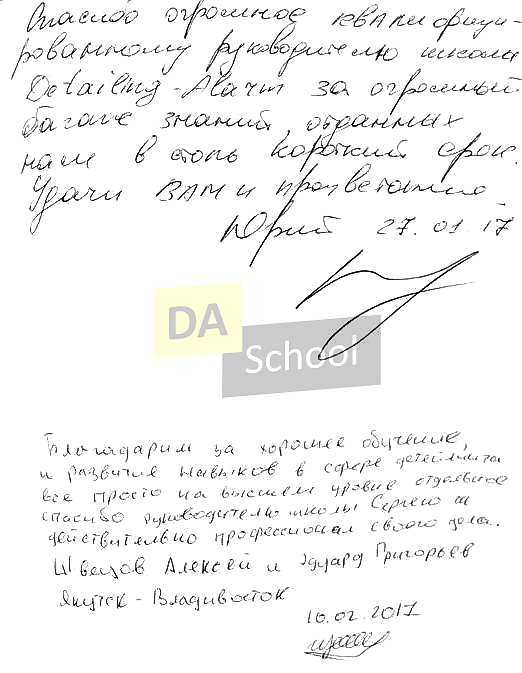 Спасибо огромное квалифици-
рованному руководителю школы
Detailing-Alarm за огромный
багаж знаний, отданных
нам в столь короткий срок.
Удачи ВАМ и процветания
Юрий 27.01.17
DA
School
Благодарим за хорошее обучение,
и развитие навыков в сфере детейлинга
все просто на высшем уровне отдельное
спасибо руководителю школы Сергею
действительно профессионал своего дела.
Швецов Алексей и Эдуард Григорьев
Якутск - Владивосток
10.02.2017